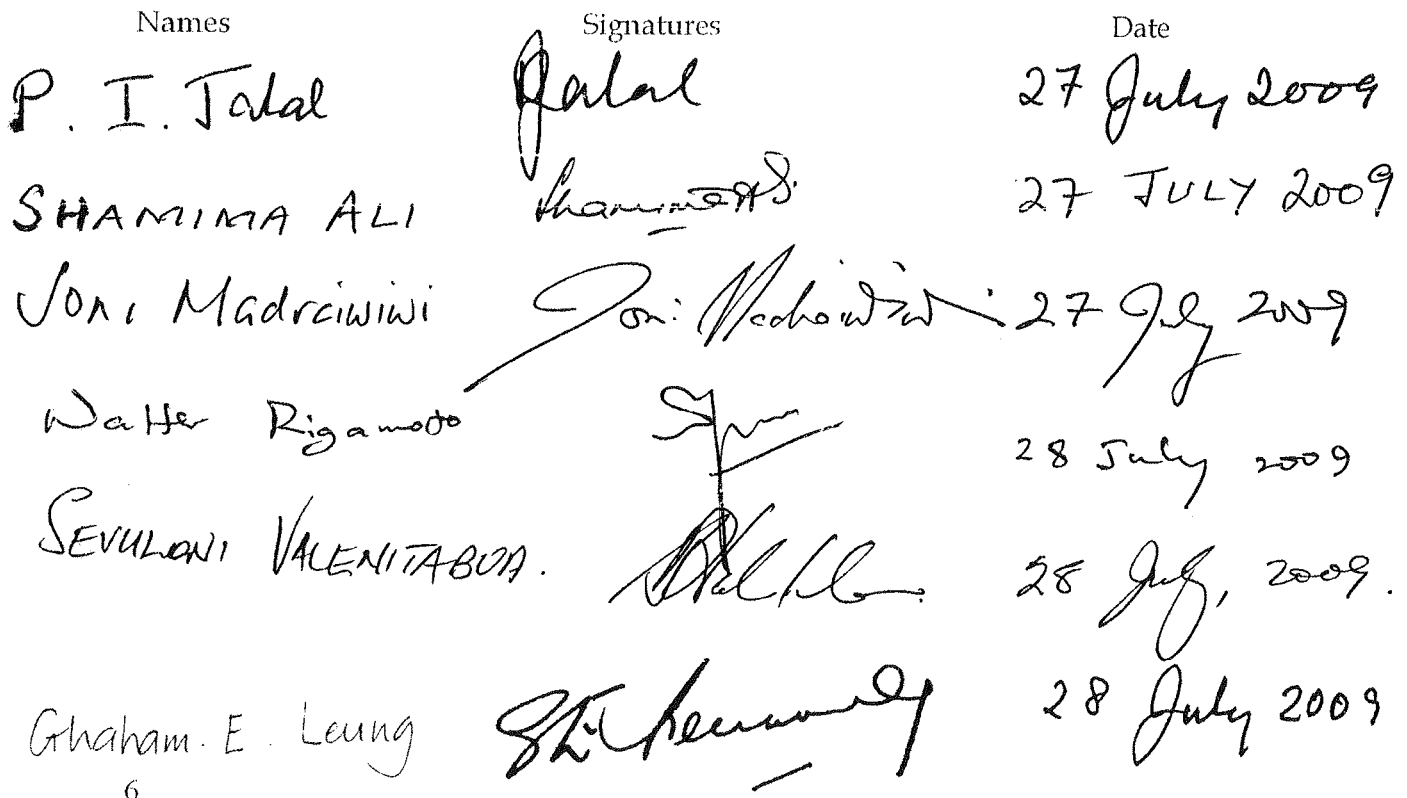 Names Signatures Date
P. I. Jalal Jalal 27 July 2009
SHAMIMA ALI 27 JULY 2009
Joni Madraiwiwi Joni Madraiwiwi 27 July 2009
Walter Rigamoto 28 July 2009
SEVULONI VALENITABUA. 28 July, 2009.
Ghaham. E. Leung 28 July 2009
6